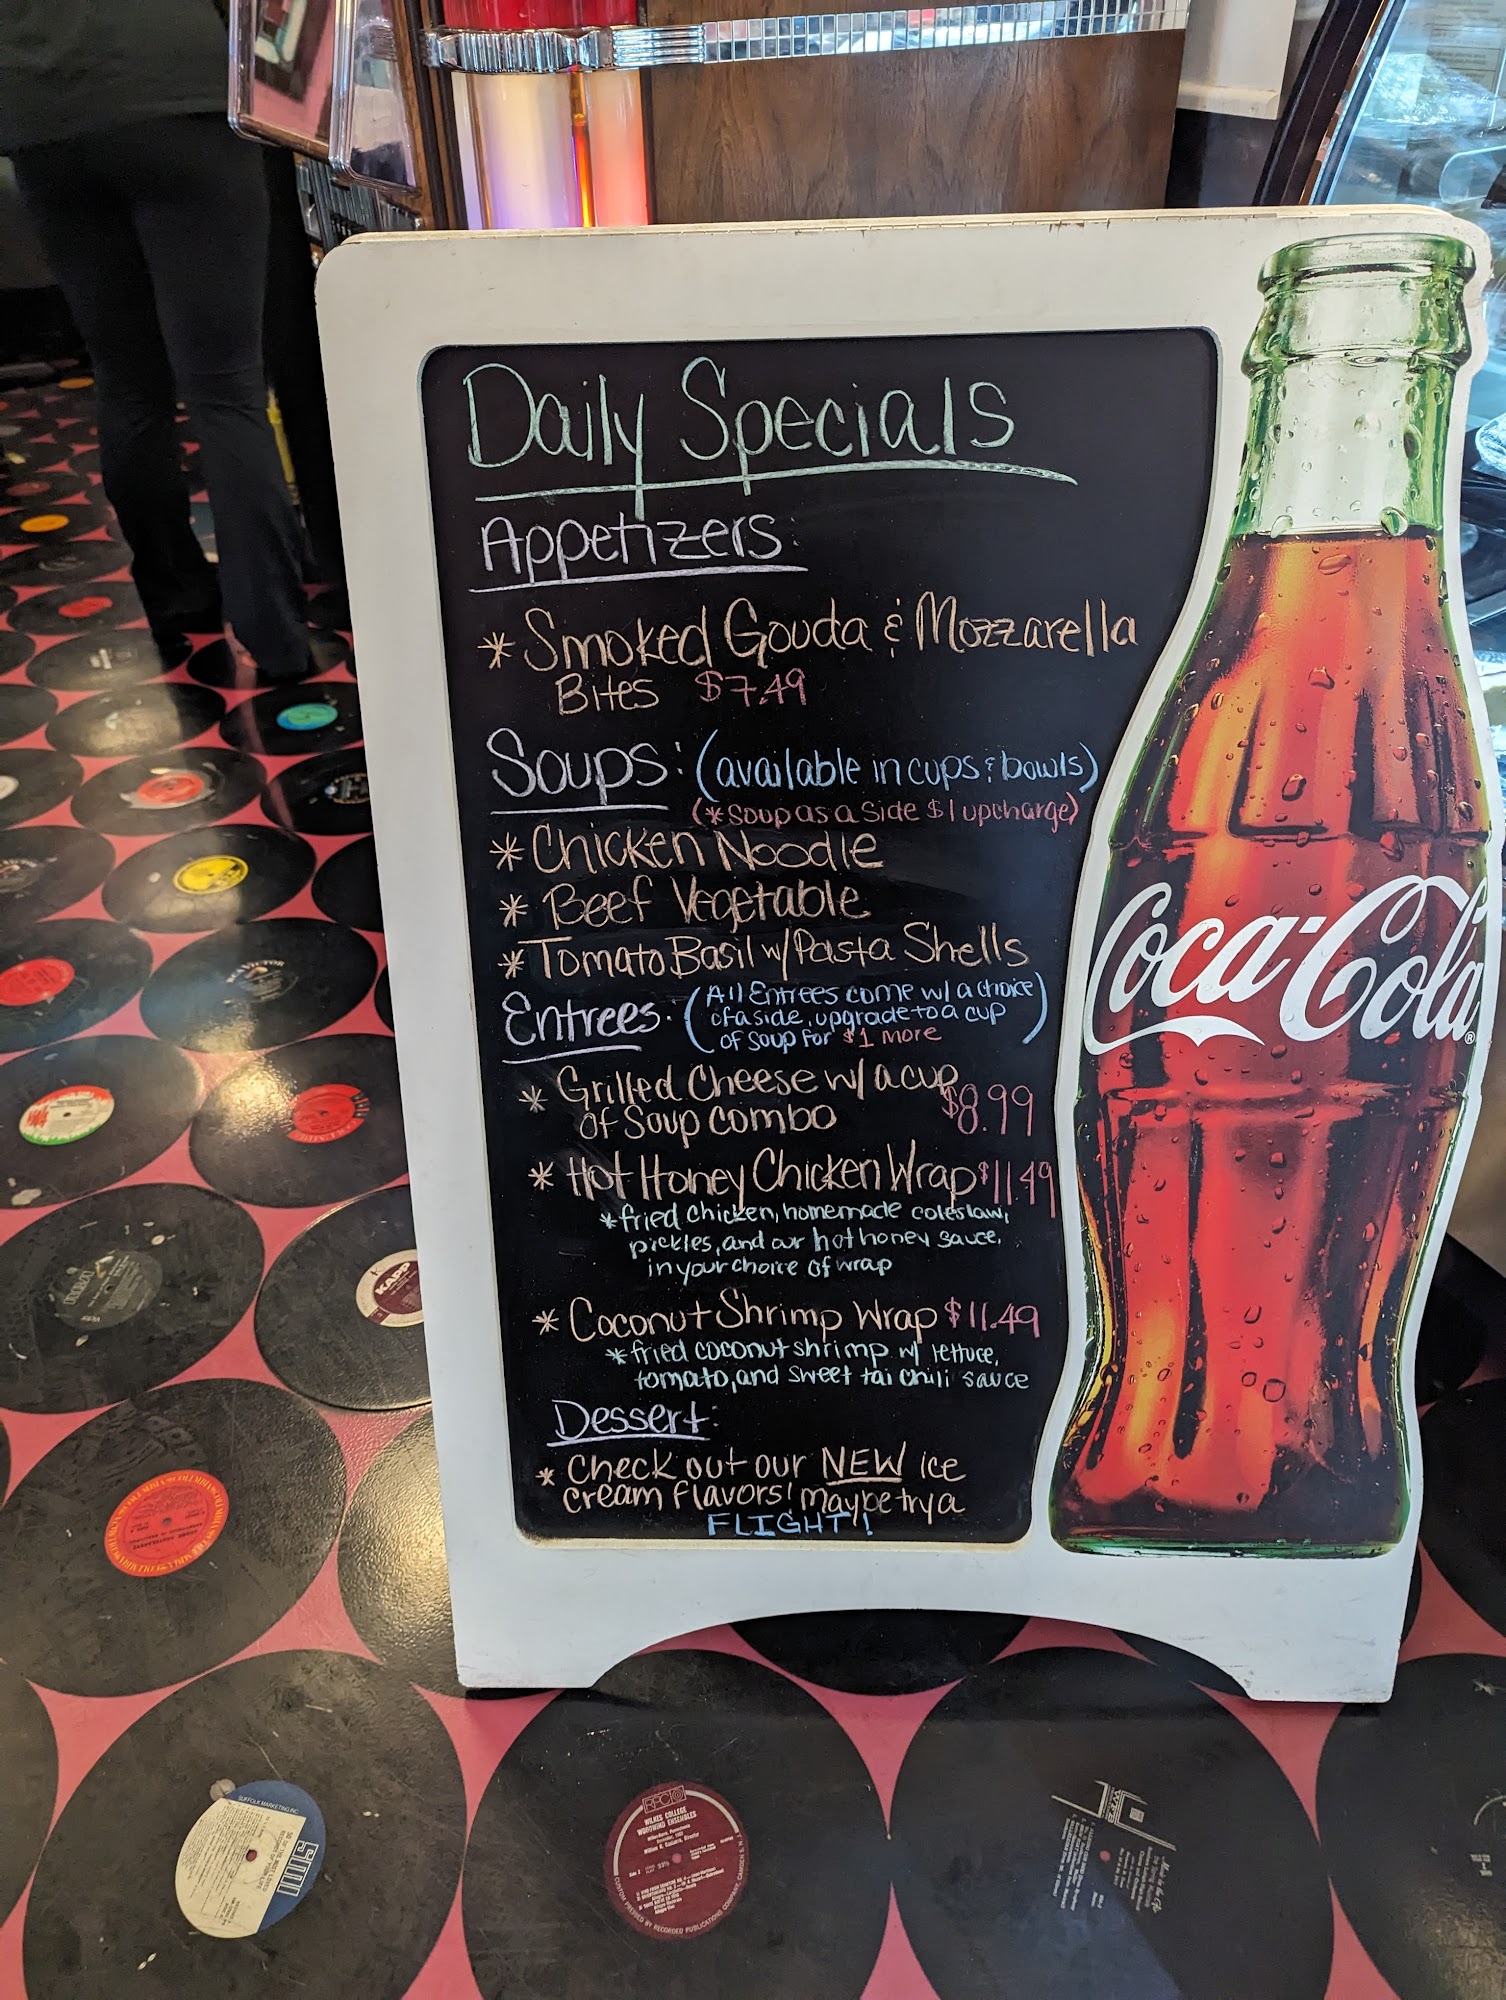 Daily Specials
Appetizers:
* Smoked Gouda & Mozzarella
Bites $7.49
Soups: (available in cups & bowls)
(* Soup as a side $1 upcharge)
* Chicken Noodle
* Beef Vegetable
* Tomato Basil w/ Pasta Shells
Entrees: (All Entrees come w/ a choice
of a side, upgrade to a cup
of soup for $1 more)
* Grilled Cheese w/ a cup
of Soup combo $8.99
* Hot Honey Chicken Wrap $11.49
* fried chicken, homemade coleslaw,
pickles, and our hot honey sauce,
in your choice of wrap
* Coconut Shrimp Wrap $11.49
* fried coconut shrimp w/ lettuce,
tomato, and sweet tai chili sauce
Dessert:
* Check out our NEW ice
cream flavors! Maybe try a
FLIGHT!
Coca-Cola®
KAPP
SUFFOLK MARKETING INC
RPC
WILKES COLLEGE
WOODWIND ENSEMBLES